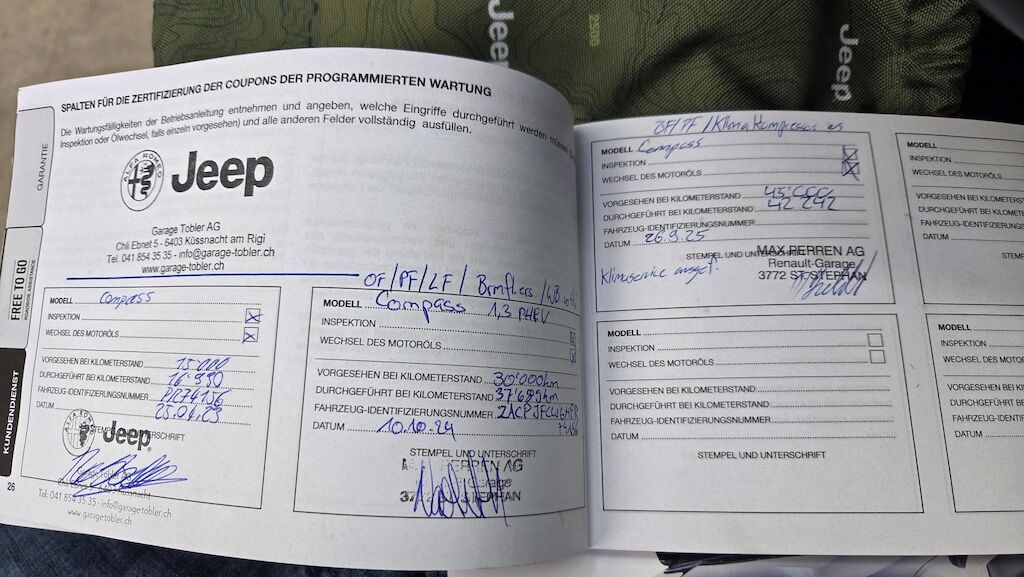 Jeep
Jeep
SPALTEN FÜR DIE ZERTIFIZIERUNG DER COUPONS DER PROGRAMMIERTEN WARTUNG
Die Wartungsfälligkeiten der Betriebsanleitung entnehmen und angeben, welche Eingriffe durchgeführt werden müssen
Inspektion oder Ölwechsel, falls einzeln vorgesehen) und alle anderen Felder vollständig ausfüllen.
GARANTIE
FREE TO GO
ROADSIDE ASSISTANCE
KUNDENDIENST
ALFA ROMEO
Jeep
Garage Tobler AG
Chli Ebnet 5 - 6403 Küssnacht am Rigi
Tel. 041 854 35 35 - info@garage-tobler.ch
www.garage-tobler.ch
MODELL Compass
INSPEKTION
WECHSEL DES MOTORÖLS
VORGESEHEN BEI KILOMETERSTAND 15.000
DURCHGEFÜHRT BEI KILOMETERSTAND 16.990
FAHRZEUG-IDENTIFIZIERUNGSNUMMER
DATUM 25.04.23
STEMPEL UND UNTERSCHRIFT
Jeep
Küssnacht
Tel. 041 854 35 35 - info@garage-tobler.ch
www.garage-tobler.ch
26
ÖF/PF/LF/
MODELL Compass 1,3 PHEV
INSPEKTION
WECHSEL DES MOTORÖLS
VORGESEHEN BEI KILOMETERSTAND 30'000km
DURCHGEFÜHRT BEI KILOMETERSTAND
FAHRZEUG-IDENTIFIZIERUNGSNUMMER
DATUM 10.10.24
STEMPEL UND UNTERSCHRIFT
PERREN AG
3772 ST. STEPHAN
ÖF/PF/Klima
MODELL Compass
INSPEKTION
WECHSEL DES MOTORÖLS
VORGESEHEN BEI KILOMETERSTAND 45'000
DURCHGEFÜHRT BEI KILOMETERSTAND 42 242
FAHRZEUG-IDENTIFIZIERUNGSNUMMER
DATUM 26.9.25
STEMPEL
MAX PERREN AG
Renault-Garage
3772 ST. STEPHAN
Klimaservice ausgef.
MODELL
INSPEKTION
WECHSEL DES MOTORÖLS
VORGESEHEN BEI KILOMETERSTAND
DURCHGEFÜHRT BEI KILOMETERSTAND
FAHRZEUG-IDENTIFIZIERUNGSNUMMER
DATUM
STEMPEL UND UNTERSCHRIFT
MODELL
INSPEKTION
WECHSEL DES MOTORÖLS
VORGESEHEN BEI
DURCHGEFÜHRT
FAHRZEUG-IDENT
DATUM
MODELL
INSPEKTION
WECHSEL DES MO
VORGESEHEN BEI
DURCHGEFÜHRT
FAHRZEUG-IDENT
DATUM